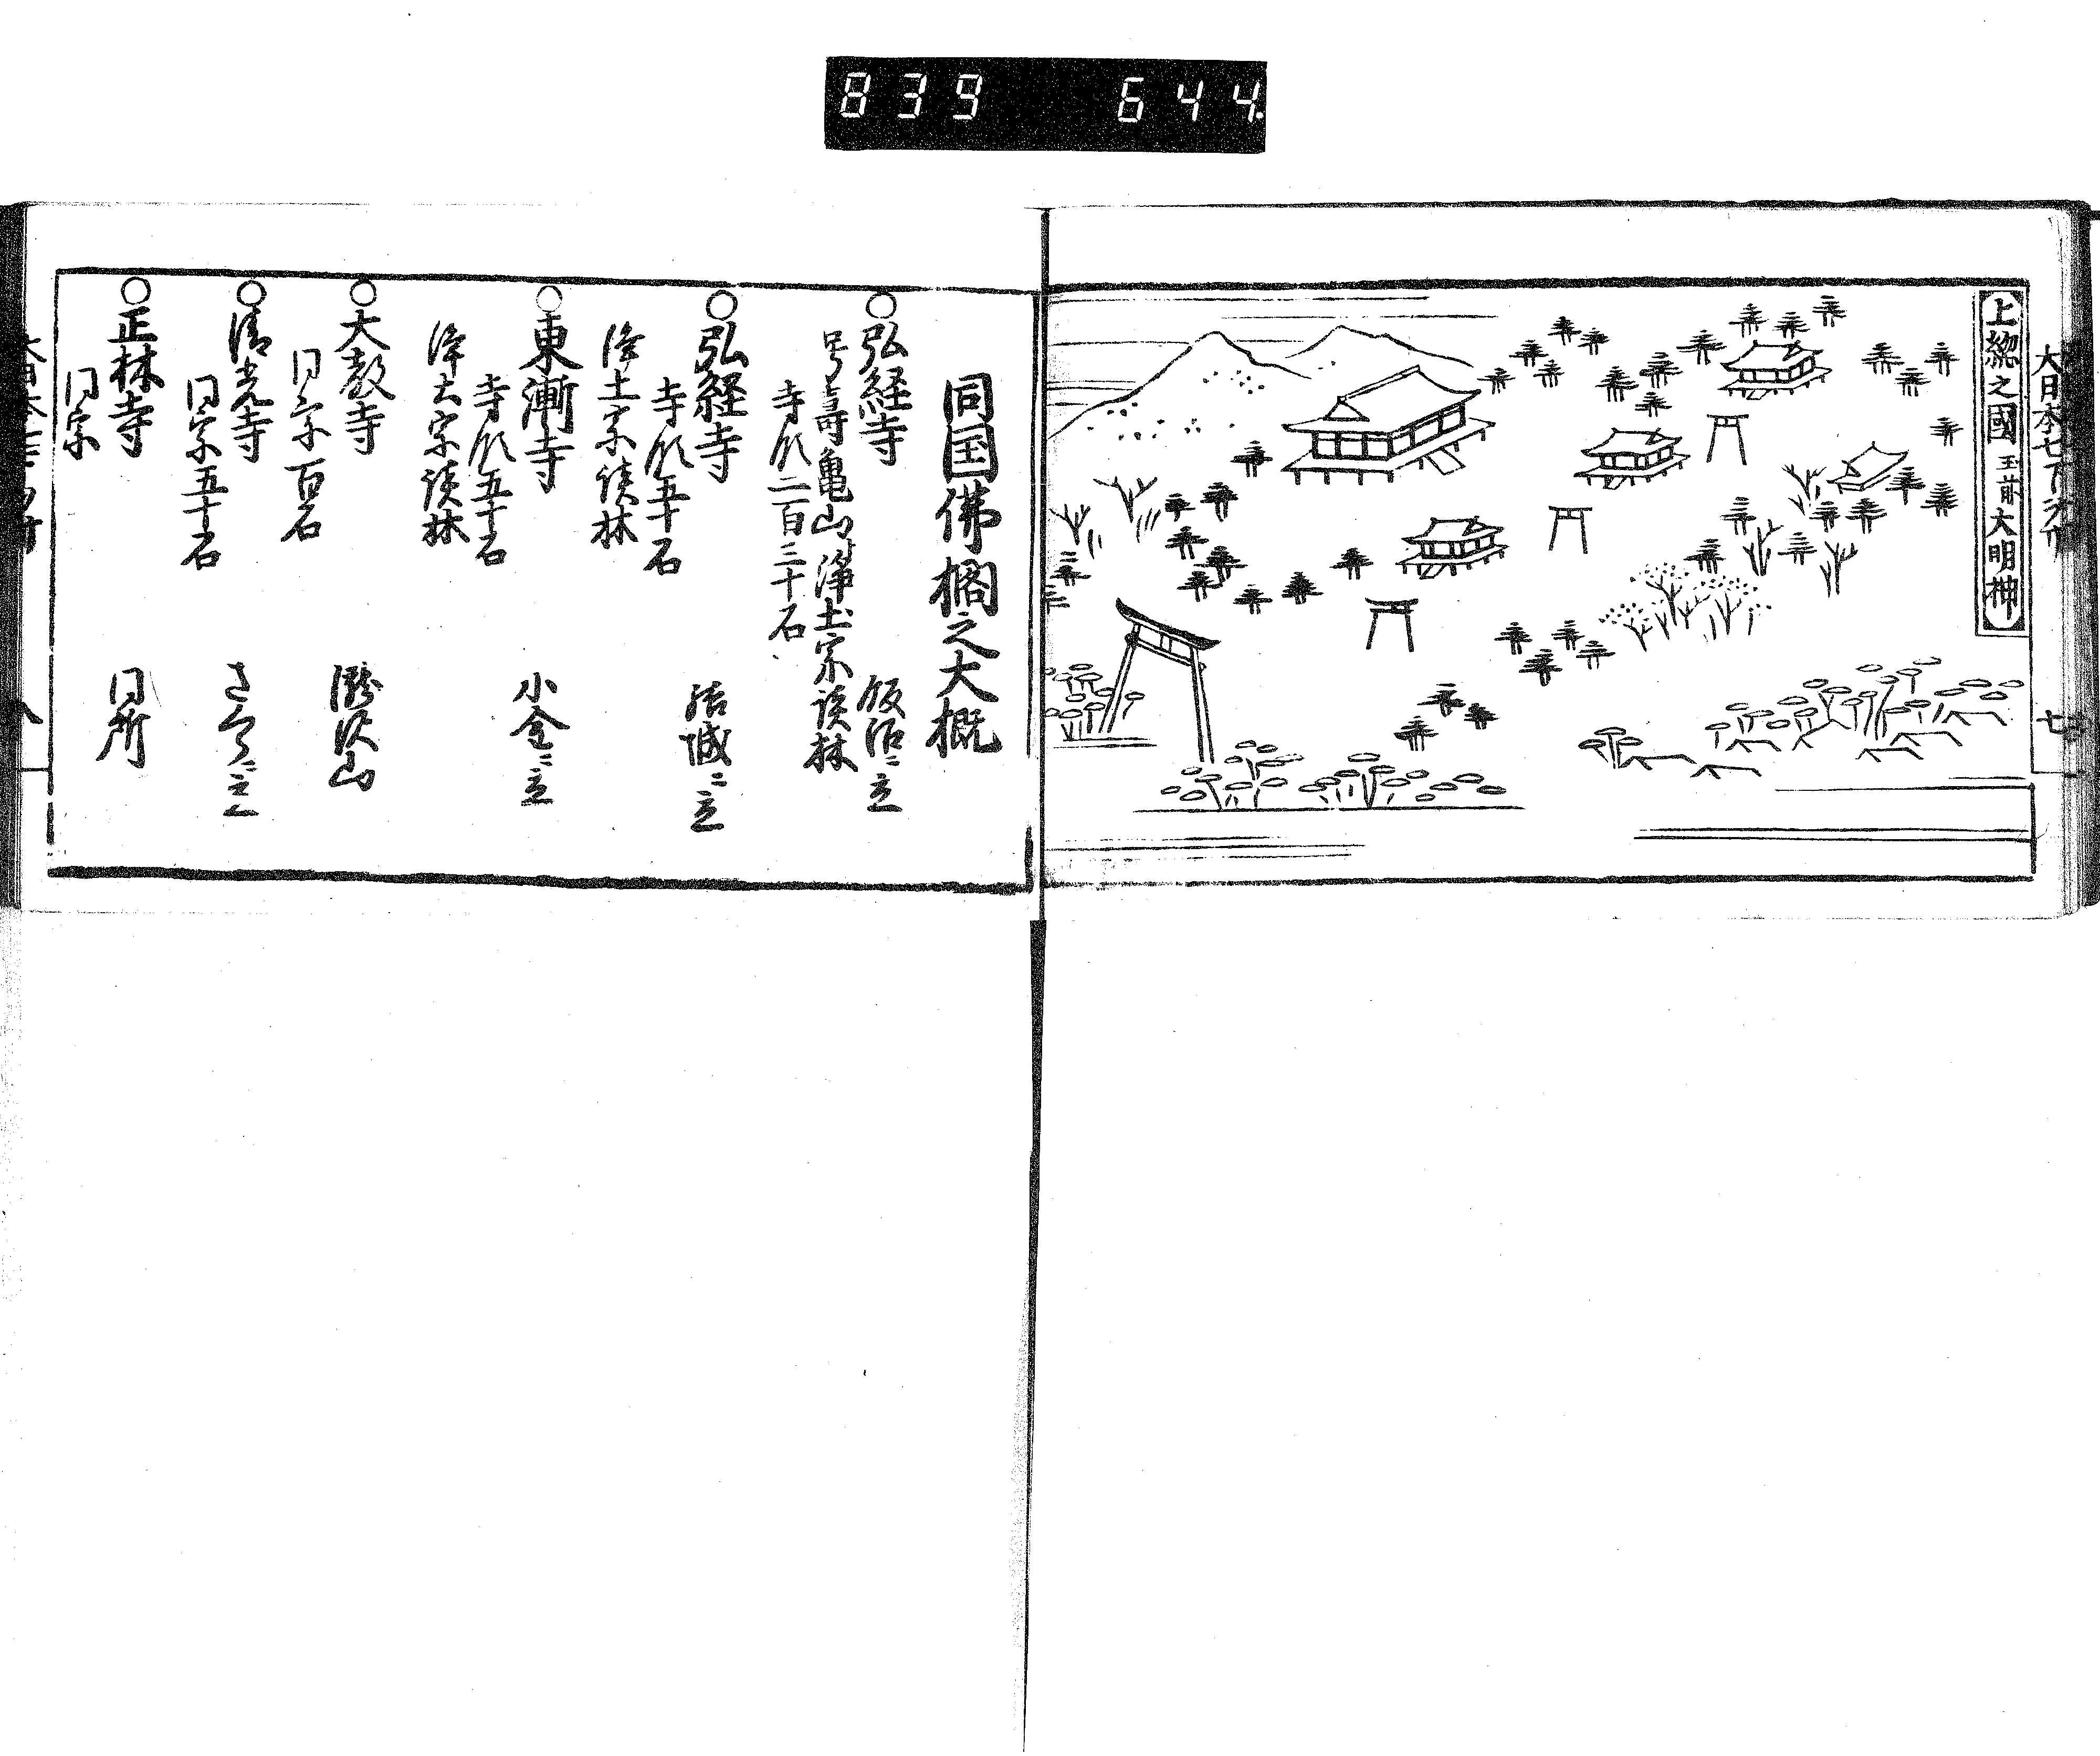 839 644
大日本七下之下 七
上総之國 玉前大明神
同国佛閣之大概
○弘経寺 飯沼ニ立
号寿亀山浄土宗談林
寺領二百三十石
○弘経寺 結城ニ立
寺領五十石
浄土宗談林
○東漸寺 小金ニ立
寺領五十石
浄土宗談林
○大巌寺 瀧沢山
同宗百石
○清光寺 さくらニ立
同宗五十石
○正林寺 同所
同宗